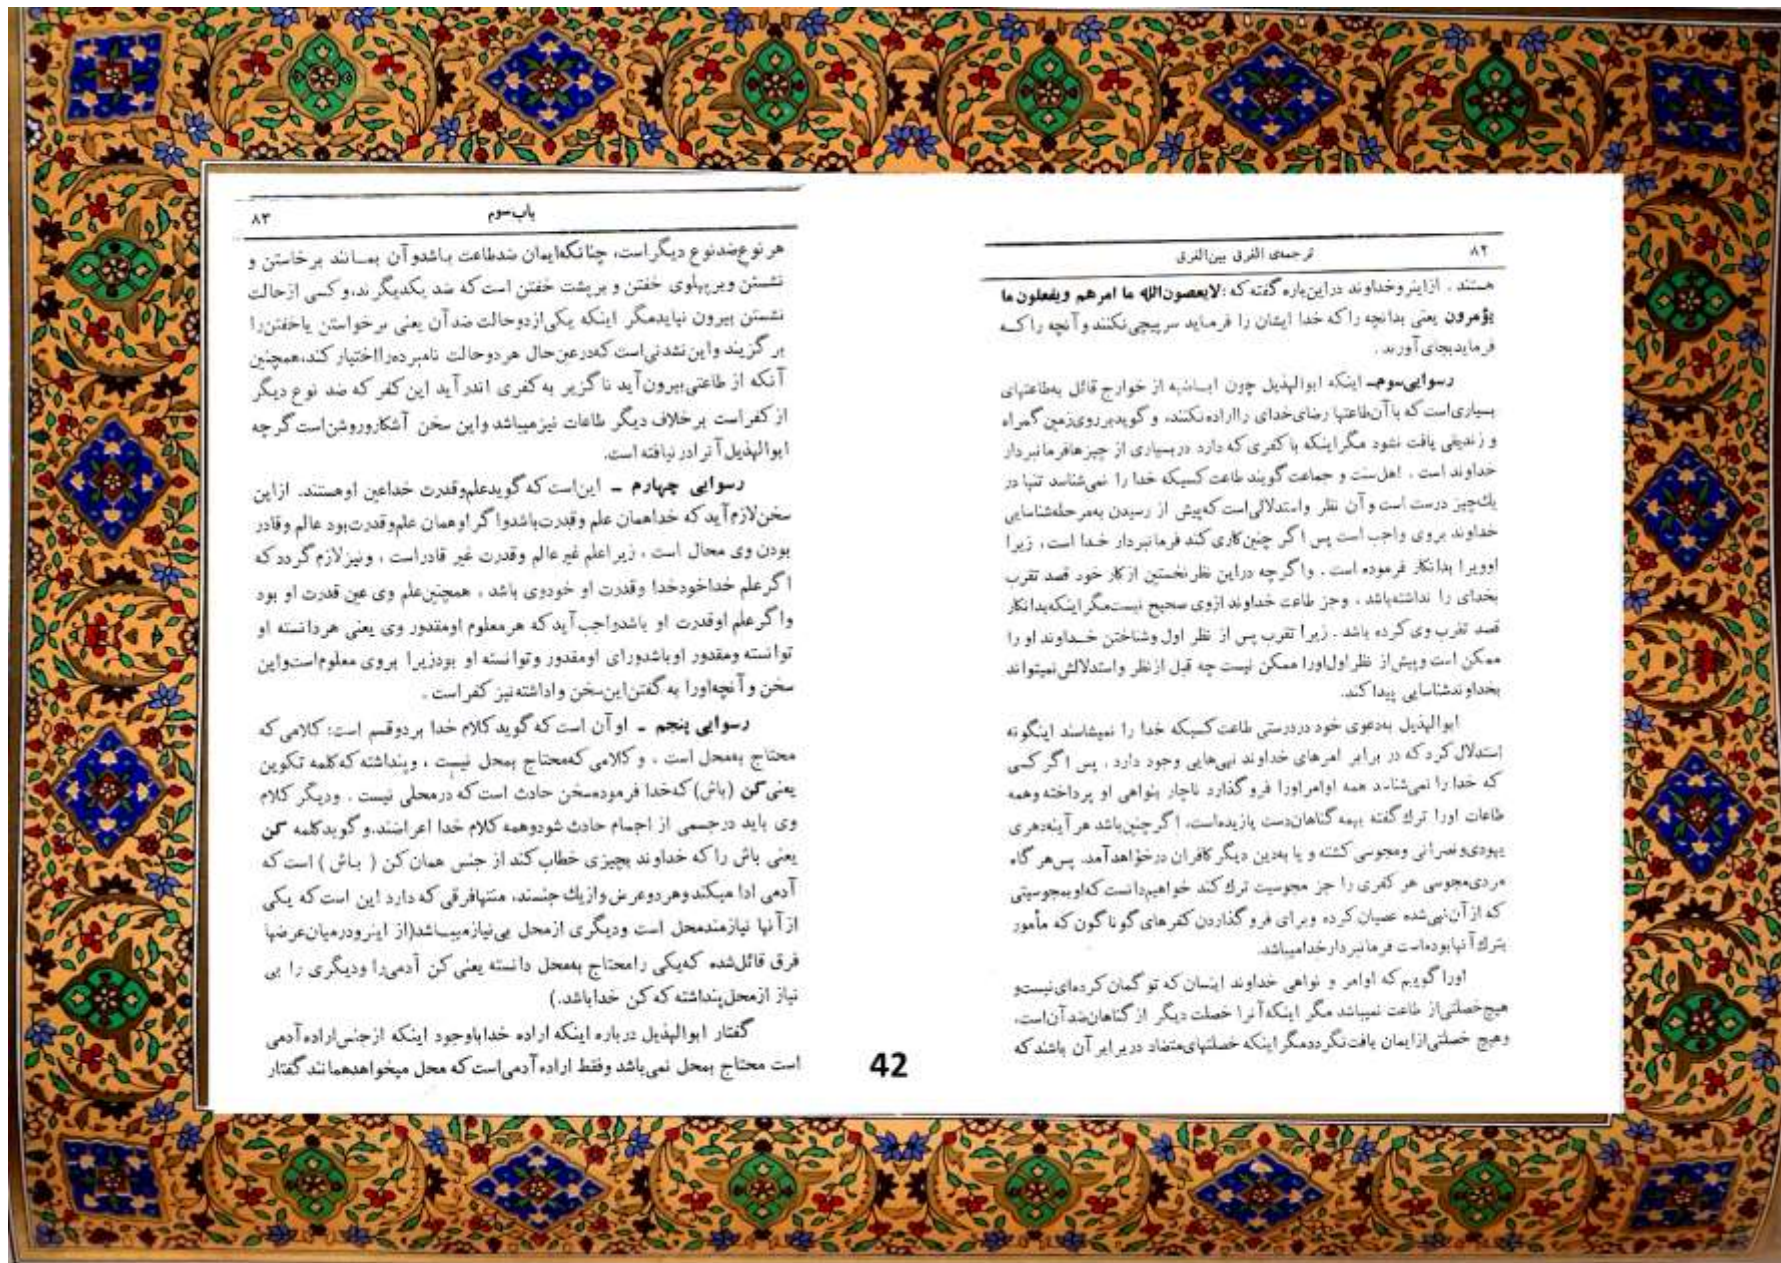 ۸۲
ترجمه‌ی الفرق بین‌الفرق
هستند . ازاینروخداوند دراین‌باره گفته که : لایعصون‌الله ما امرهم ویفعلون ما
یؤمرون یعنی بدانچه راکه خدا ایشان را فرماید سرپیچی‌نکنند وآنچه راکه
فرمایدبجای آورند .
رسوایی‌سوم‌ـ اینکه ابوالهذیل چون اباضیه از خوارج قائل به‌طاعتهای
بسیاری‌است که باآن‌طاعتها رضای‌خدای رااراده‌نکنند، و گویدبرروی‌زمین گمراه
و زندیقی یافت نشود مگراینکه باکفری‌که دارد دربسیاری از چیزهافرمانبردار
خداوند است . اهل‌سنت و جماعت گویند طاعت کسیکه خدا را نمی‌شناسد تنها در
یك‌چیز درست است وآن نظر واستدلالی‌است که‌پیش از رسیدن به‌مرحله‌شناسایی
خداوند بروی واجب است پس اگر چنین‌کاری کند فرمانبردار خدا است ، زیرا
اوویرا بدانکار فرموده است . واگرچه دراین نظرنخستین ازکار خود قصد تقرب
بخدای را نداشته‌باشد ، وجز طاعت خداوند ازوی صحیح نیست‌مگراینکه‌بدانکار
قصد تقرب وی‌کرده باشد . زیرا تقرب پس از نظر اول وشناختن خداوند او را
ممکن است وپیش‌از نظراول‌اورا ممکن نیست چه قبل ازنظر واستدلالش‌نمیتواند
بخداوندشناسایی پیداکند.
ابوالهذیل به‌دعوی خود دردرستی طاعت کسیکه خدا را نمیشناسد اینگونه
استدلال کرد که در برابر امرهای خداوند نهی‌هایی وجود دارد . پس اگر کسی
که خدا را نمی‌شناسد همه اوامراورا فرو گذارد ناچار بنواهی او پرداخته وهمه
طاعات اورا ترك گفته بهمه گناهان‌دست یازیده‌است، اگرچنین‌باشد هرآینه‌دهری
یهودی‌ونصرانی ومجوسی گشته و یا به‌دین دیگرکافران درخواهدآمد. پس‌هرگاه
مردی‌مجوسی هر کفری را جز مجوسیت ترك کند خواهیم‌دانست که‌اوبمجوسیتی
که از آن‌نهی‌شده عصیان کرده وبرای فروگذاردن کفرهای گوناگون که مأمور
بترك‌آنهابوده‌است فرمانبردارخدامیباشد.
اورا گویم که اوامر و نواهی خداوند اینسان که تو گمان کرده‌ای‌نیست‌و
هیچ‌خصلتی‌از طاعت نمیباشد مگر اینکه‌آنرا خصلت دیگر از گناهان‌ضدآن‌است،
وهیچ خصلتی‌ازایمان یافت‌نگرددمگراینکه خصلتهای‌متضاد دربرابرآن باشندکه
باب‌سوم
۸۳
هر نوع‌ضدنوع دیگراست، چنانکه‌ایمان ضدطاعت باشدوآن بمانند برخاستن و
نشستن وبرپهلوی خفتن و برپشت خفتن است که ضد یکدیگرند،و کسی ازحالت
نشستن بیرون نیایدمگر اینکه یکی‌ازدوحالت ضدآن یعنی برخواستن یاخفتن‌را
برگزیند واین‌نشدنی‌است که‌درعین‌حال هردوحالت نامبرده‌رااختیار کند،همچنین
آنکه از طاعتی‌بیرون‌آید ناگزیر به‌کفری اندرآید این‌کفر که ضد نوع دیگر
ازکفراست برخلاف دیگر طاعات نیزمیباشد واین سخن آشکاروروشن‌است گرچه
ابوالهذیل‌آنرادرنیافته است.
رسوایی چهارم ـ این‌است که گویدعلم‌وقدرت خداعین اوهستند. ازاین
سخن‌لازم‌آید که خداهمان علم وقدرت‌باشدواگراوهمان علم‌وقدرت‌بود عالم وقادر
بودن وی محال است ، زیراعلم غیرعالم وقدرت غیر قادراست ، ونیزلازم گردد که
اگرعلم خداخودخدا وقدرت او خودوی باشد ، همچنین‌علم وی عین قدرت او بود
واگرعلم اوقدرت او باشدواجب‌آیدکه هرمعلوم اومقدور وی یعنی هردانسته او
توانسته ومقدور اوباشدورای اومقدور وتوانسته او بودزیرا بروی معلوم‌است‌واین
سخن وآنچه‌اورا به گفتن‌این‌سخن واداشته‌نیز کفراست .
رسوایی پنجم ـ اوآن است‌که گوید کلام خدا بردوقسم است: کلامی‌که
محتاج به‌محل است ، و کلامی که‌محتاج بمحل نیست ، وپنداشته که‌کلمه تکوین
یعنی‌کن (باش) که‌خدا فرموده‌سخن حادث است‌که درمحلی نیست . ودیگر کلام
وی باید درجسمی از اجسام حادث شودوهمه کلام خدا اعراضند.و گویدکلمه کن
یعنی باش راکه خداوند بچیزی خطاب‌کند از جنس همان کن ( باش ) است که
آدمی ادا میکندوهردوعرض‌وازیك جنسند، منتهافرقی که دارد این است که یکی
ازآنها نیازمندمحل است ودیگری ازمحل بی‌نیازمیباشد(از اینرودرمیان‌عرضها
فرق قائل‌شده که‌یکی رامحتاج به‌محل دانسته یعنی‌کن آدمی‌را ودیگری را بی
نیاز ازمحل‌پنداشته که کن خداباشد.)
گفتار ابوالهذیل درباره اینکه اراده خداباوجود اینکه ازجنس‌اراده‌آدمی
است محتاج بمحل نمی‌باشد وفقط اراده‌آدمی‌است که محل میخواهدهمانند گفتار
42